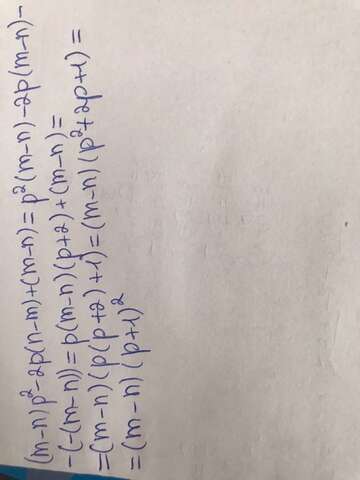 (m-n)p²-2p(n-m)+(m-n)=p²(m-n)-2p(m-n)-
-(-(m-n))=p(m-n)(p+2)+(m-n)=
=(m-n)(p(p+2)+1)=(m-n)(p²+2p+1)=
=(m-n)(p+1)²